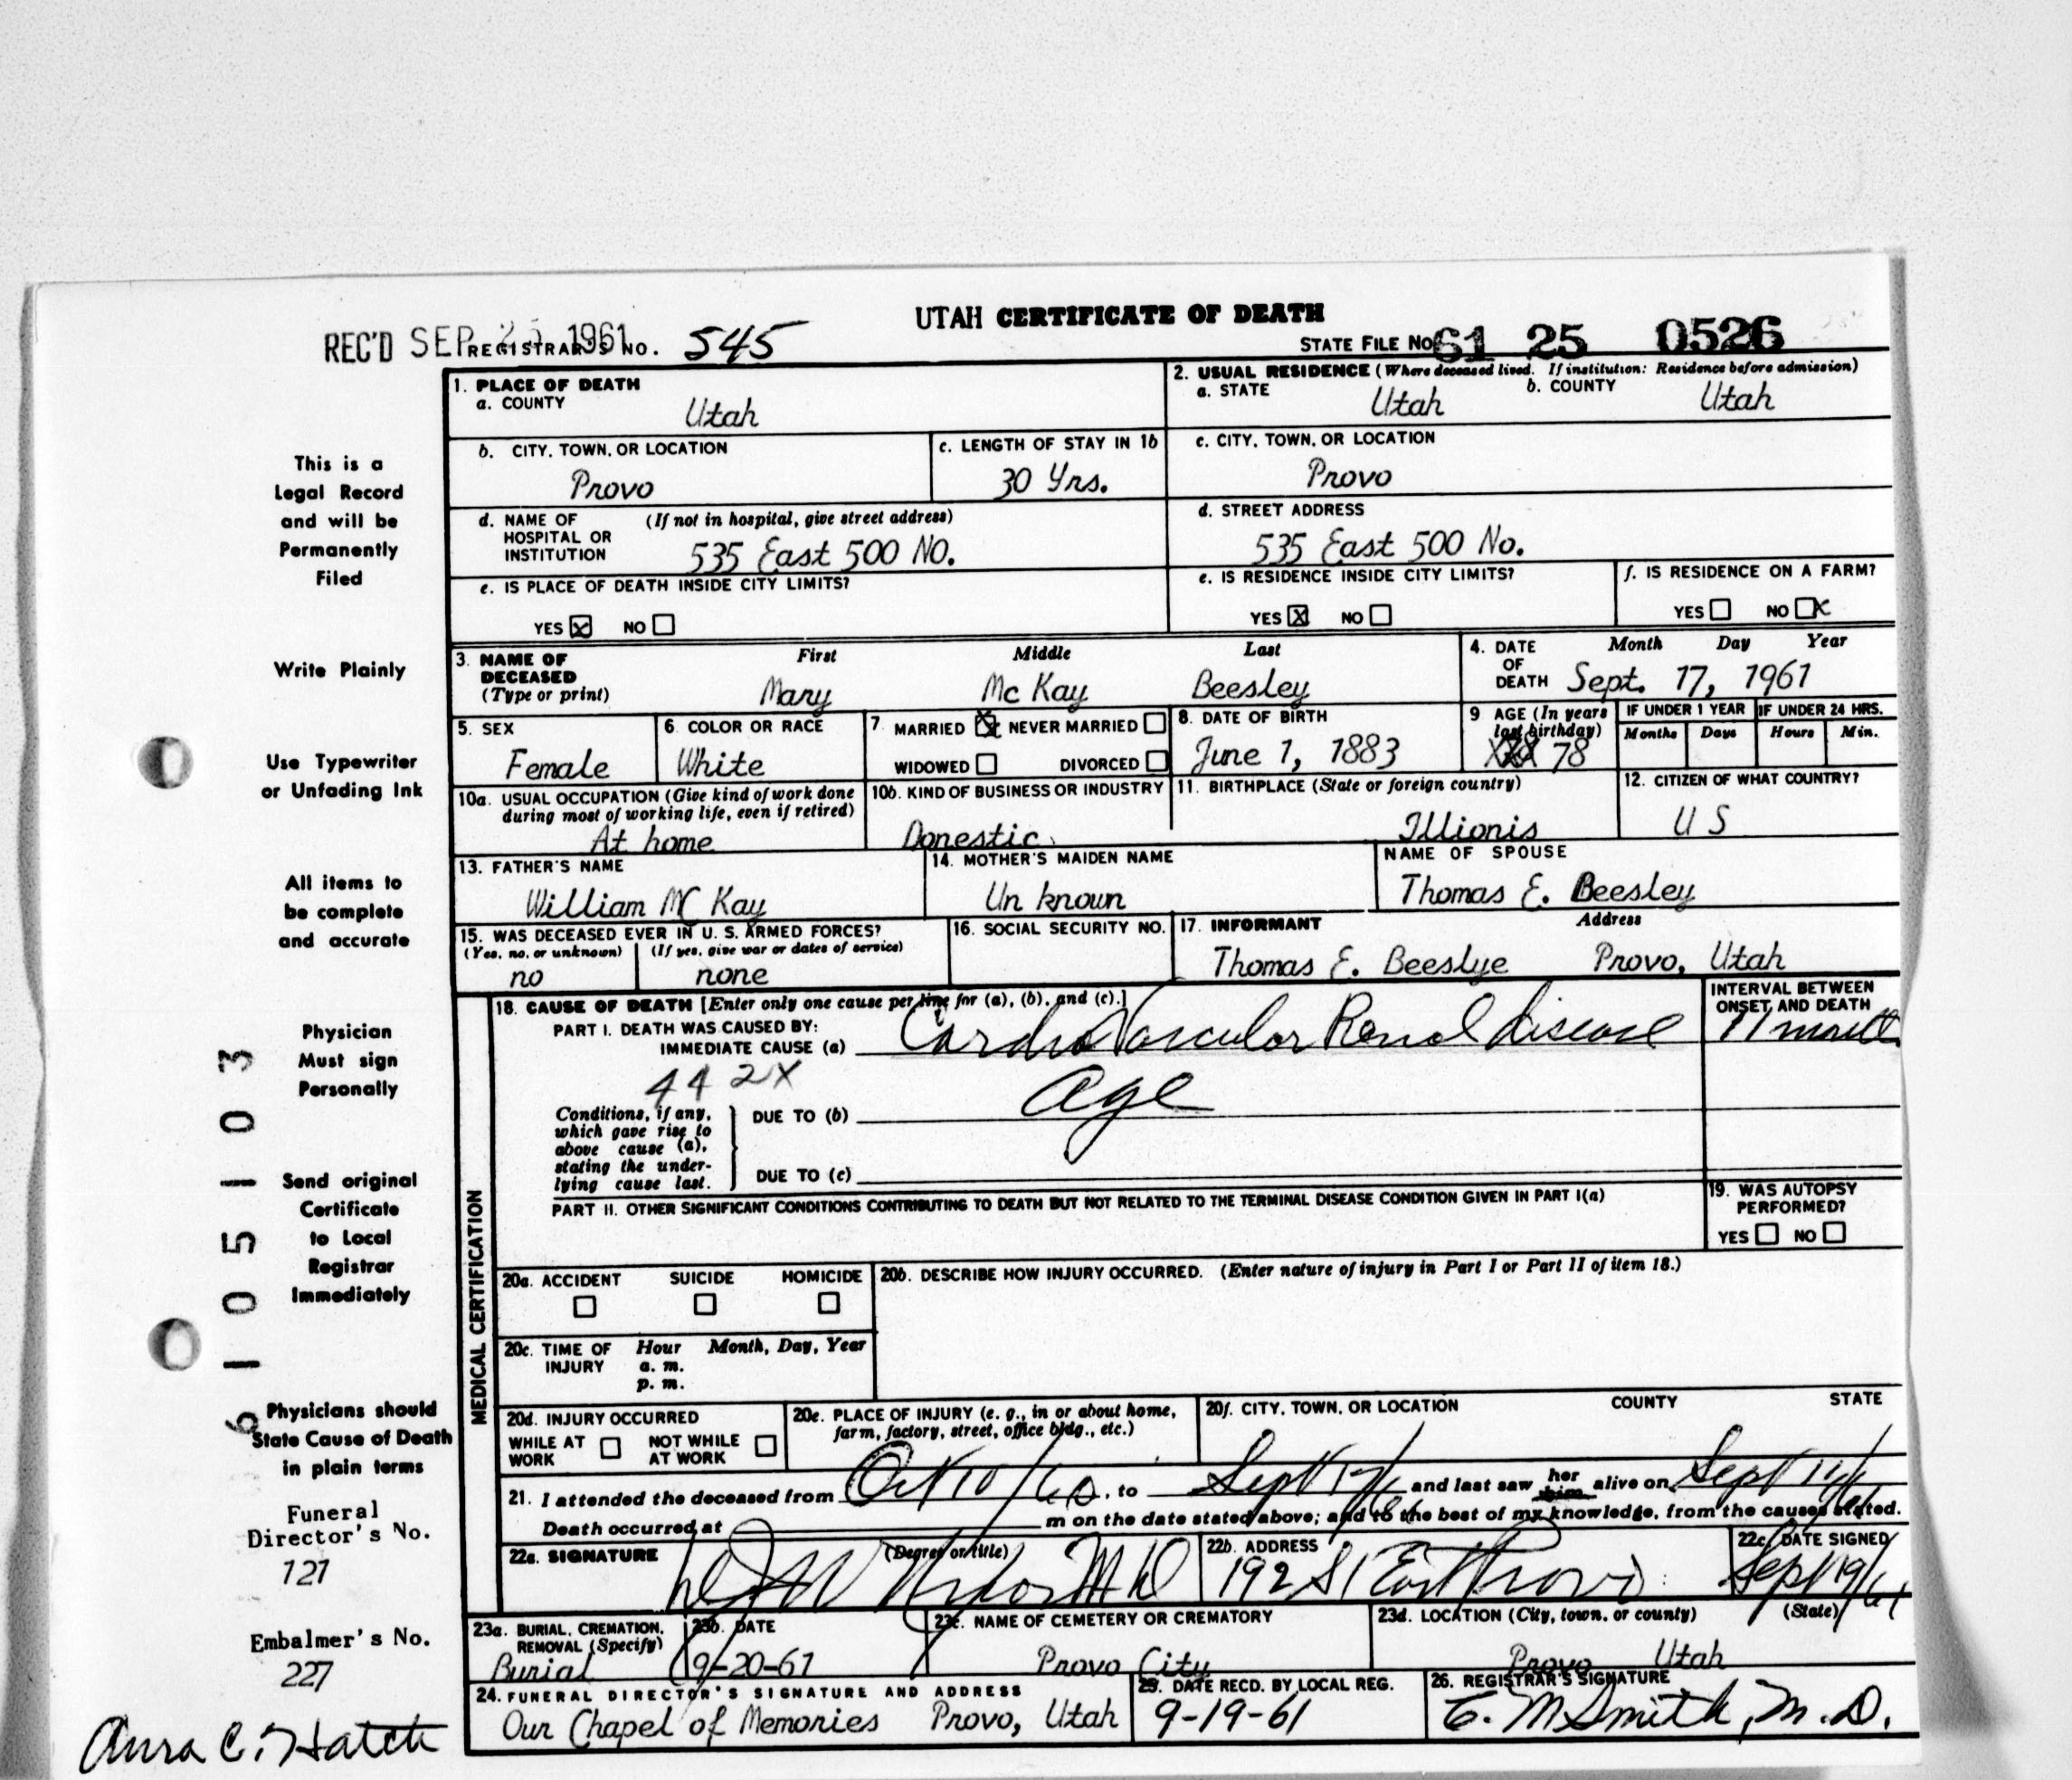 UTAH CERTIFICATE OF DEATH
REC'D SEP 1961 REGISTRAR'S NO. 545
STATE FILE NO. 61 25 0526
1. PLACE OF DEATH
a. COUNTY
Utah
2. USUAL RESIDENCE (Where deceased lived. If institution: Residence before admission)
a. STATE Utah b. COUNTY Utah
b. CITY, TOWN, OR LOCATION
Provo
c. LENGTH OF STAY IN 1b
30 Yrs.
c. CITY, TOWN, OR LOCATION
Provo
d. NAME OF HOSPITAL OR INSTITUTION (If not in hospital, give street address)
535 East 500 NO.
d. STREET ADDRESS
535 East 500 No.
e. IS PLACE OF DEATH INSIDE CITY LIMITS?
YES X NO
e. IS RESIDENCE INSIDE CITY LIMITS?
YES X NO
f. IS RESIDENCE ON A FARM?
YES NO X
3. NAME OF DECEASED (Type or print)
First Middle Last
Mary Mc Kay Beesley
4. DATE OF DEATH Month Day Year
Sept. 17, 1961
5. SEX
Female
6. COLOR OR RACE
White
7. MARRIED X NEVER MARRIED
WIDOWED DIVORCED
8. DATE OF BIRTH
June 1, 1883
9 AGE (In years last birthday)
78
IF UNDER 1 YEAR IF UNDER 24 HRS.
Months Days Hours Min.
10a. USUAL OCCUPATION (Give kind of work done during most of working life, even if retired)
At home
10b. KIND OF BUSINESS OR INDUSTRY
Donestic
11. BIRTHPLACE (State or foreign country)
Illionis
12. CITIZEN OF WHAT COUNTRY?
U S
13. FATHER'S NAME
William Mc Kay
14. MOTHER'S MAIDEN NAME
Un known
NAME OF SPOUSE
Thomas E. Beesley
15. WAS DECEASED EVER IN U. S. ARMED FORCES?
(Yes, no, or unknown) (If yes, give war or dates of service)
no none
16. SOCIAL SECURITY NO.
17. INFORMANT Address
Thomas E. Beeslye Provo, Utah
MEDICAL CERTIFICATION
18. CAUSE OF DEATH [Enter only one cause per line for (a), (b), and (c).]
PART I. DEATH WAS CAUSED BY:
IMMEDIATE CAUSE (a) Cardio Vascular Renal Disease
INTERVAL BETWEEN ONSET AND DEATH
11
442X
Conditions, if any, which gave rise to above cause (a), stating the underlying cause last.
DUE TO (b) Age
DUE TO (c)
PART II. OTHER SIGNIFICANT CONDITIONS CONTRIBUTING TO DEATH BUT NOT RELATED TO THE TERMINAL DISEASE CONDITION GIVEN IN PART I(a)
19. WAS AUTOPSY PERFORMED?
YES NO
20a. ACCIDENT SUICIDE HOMICIDE
20b. DESCRIBE HOW INJURY OCCURRED. (Enter nature of injury in Part I or Part II of item 18.)
20c. TIME OF INJURY Hour Month, Day, Year
a. m.
p. m.
20d. INJURY OCCURRED
WHILE AT WORK NOT WHILE AT WORK
20e. PLACE OF INJURY (e. g., in or about home, farm, factory, street, office bldg., etc.)
20f. CITY, TOWN, OR LOCATION COUNTY STATE
21. I attended the deceased from Oct 10/60, to Sept 17/61 and last saw her him alive on Sept
Death occurred at m on the date stated above; and to the best of my knowledge, from the causes stated.
22a. SIGNATURE (Degree or title)
M D
22b. ADDRESS
192 S 1 East Provo
22c. DATE SIGNED
Sept 19/61
23a. BURIAL, CREMATION, REMOVAL (Specify)
Burial
23b. DATE
9-20-61
23c. NAME OF CEMETERY OR CREMATORY
Provo City
23d. LOCATION (City, town, or county) (State)
Provo Utah
24. FUNERAL DIRECTOR'S SIGNATURE AND ADDRESS
Our Chapel of Memories Provo, Utah
25. DATE RECD. BY LOCAL REG.
9-19-61
26. REGISTRAR'S SIGNATURE
C. M Smith, M. D.
This is a
Legal Record
and will be
Permanently
Filed
Write Plainly
Use Typewriter
or Unfading Ink
All items to
be complete
and accurate
Physician
Must sign
Personally
Send original
Certificate
to Local
Registrar
Immediately
Physicians should
State Cause of Death
in plain terms
Funeral
Director's No.
121
Embalmer's No.
227
Anra C. Hatch
6 1 0 5 1 0 3